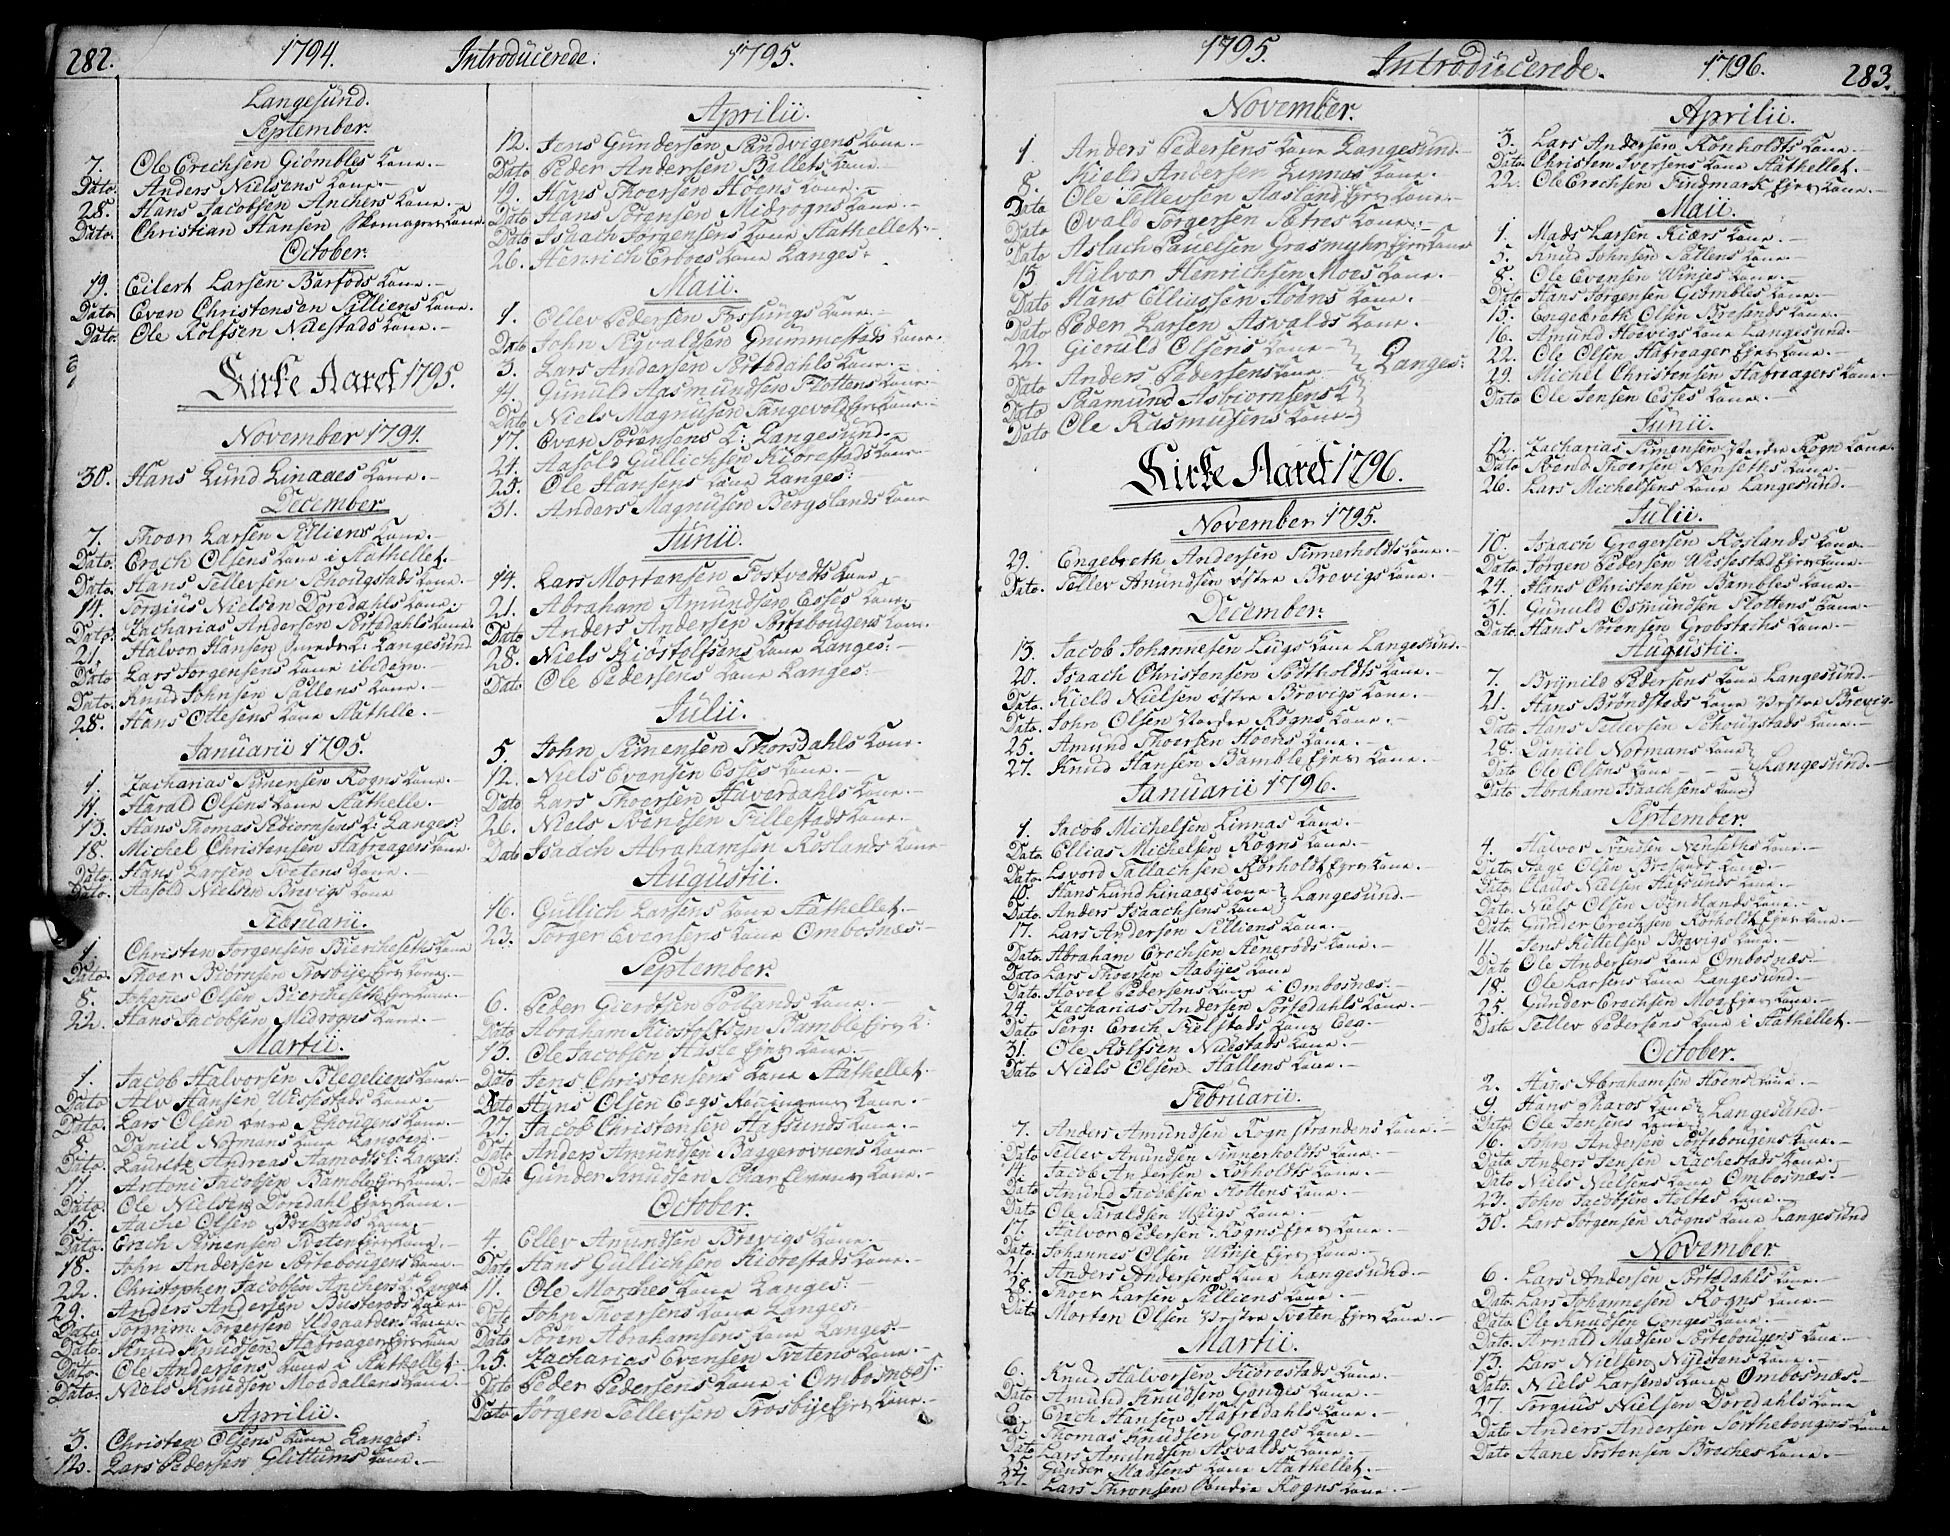 282.
1794. Introducerede. 1795.
Langesund.
September.
7. Ole Erechsen Giömbles Kone.
Dato. Anders Nielsens Kone.
28. Hans Jacobsen Anchers Kone.
Dato. Christian Hansen Skomagers Kone
October.
19. Eilert Larsen Barfods Kone.
Dato Even Christensen Silliens Kone.
Dato. Ole Rolfsen Nuestads Kone.
Kirke Aaret 1795.
November 1794.
30. Hans Lund Linaaes Kone.
December
7. Thoer Larsen Silliens Kone.
Dato. Erech Olsens Kone i Aathellet.
Dato. Hans Tellevsen Schougstads Kone.
14. Torgius Nielsen Doredahls Kone.
Dato. Zacharias Andersen Sortedahls Kone.
21. Halvor Hansen Smeds K: Langesund
Dato Lars Jorgensens Kone ibidem.
Dato. Knud Johnsen Sallens Kone.
28. Hans Ottesens Kone Aathelle.
Januarii 1795.
1. Zacharias Simensen Rogns Kone.
11. Harald Olsens Kone Aathelle.
13. Hans Thomas Sebiornsens K: Langes:
18. Michel Christensen Hafreagers Kone.
Dato. Hans Larsen Tvetens Kone.
Dato. Aasold Nielsen Brevigs Kone
Februarii.
1. Christen Jorgensen Biercheseths Kone
Dato. Thoer Biörnsen Trosbije Ejers Kone.
8. Johannes Olsen Biercheseth Ejers Kone.
22. Hans Jacobsen Midrogns Kone.
Martii.
1. Jacob Halvorsen Blegeliens Kone.
Dato Alv Hansen Wissestads Kone.
Dato. Lars Olsen övre Schougens Kone.
8. Daniel Normans Kone Langöen.
Dato. Lauretz Andreas Aamods K: Langes:
11. Antoni Jacobsen Bamble Ejers Kone.
Dato. Ole Nielsen Doredahl Ejers Kone.
15. Aache Olsen Bresands Kone.
Dato. Erech Simensen Tveten Ejers Kone.
18. John Andersen Sortebougens Kone.
22. Christopher Jacobsen Anchers K Langes
29. Anders Andersen Busterods Kone.
Dato. Torgrim Torgersen Udgaardens Kone.
Dato. Knud Knudsen Hafreager Ejers Kone
Dato. Ole Andersens Kone i Aathellet.
Dato. Niels Knudsen Moedallens Kone.
Aprilii.
3. Christen Olsens Kone Langes:
12. Lars Pedersen Glittums Kone.
Aprilii.
12. Jens Gundersen Sundvigens Kone.
Dato Peder Andersen Ballets Kone.
19. Hans Thoersen Höens Kone.
Dato Hans Sörensen Midrogns Kone.
Dato Isaach Jorgensens Kone Aathellet.
26. Henrich Erboes Kone Langes:
Maii.
1. Ellev Pedersen Fossungs Kone.
Dato John Sigvaldsen Grummestads Kone.
3. Lars Andersen Sortedahls Kone.
4. Gunuld Aasmundsen Flottens Kone.
Dato Niels Magnusen Tangevold Ejers Kone.
17. Even Sörensens K: Langesund.
24. Aasold Gullichsen Kiörestads Kone
25. Ole Hansens Kone Langes:
31. Anders Magnusen Bergslands Kone
Junii.
14. Lars Mortensen Fostvedts Kone
21. Abraham Amundsen Esses Kone.
Dato Anders Andersen Sortebougens Kone.
28. Niels Kiostolfsens Kone Langes:
Dato Ole Pedersens Kone Langes:
Julii.
5. John Simensen Thorsdahls Kone.
12. Niels Evensen Esses Kone.
Dato Lars Thoersen Haverdahls Kone.
26. Niels Svendsen Tillestads Kone.
Dato Isaach Abrahamsen Röslands Kone
Augustii.
16. Gullich Larsens Kone Aathellet.
23. Torger Evensens Kone Ombosnes:
September.
6. Peder Gierdsen Röslands Kone.
Dato Abraham Kiostolfsen Bamble Ejers K:
13. Ole Jacobsen Hasle Ejers Kone.
Dato Jens Christensens Kone Aathellet.
Dato Hans Olsen Eegs Kone.
27. Jacob Christensen Hafsunds Kone.
Dato Anders Amundsen Baggerovnens Kone.
Dato Gunder Knudsen Kone.
October.
4. Ellev Amundsen Brevigs Kone.
Dato Hans Gullichsen Kiörestads Kone.
11. Ole Morches Kone Langes:
Dato John Thoersens Kone Langes:
Dato Sören Abrahamsens Kone Langes
25. Zacharias Evensen Tvetens Kone.
Dato Peder Pedersens Kone i Ombosnæs.
Dato Jorgen Tellevsen Trosbije Ejers Kone.
1795. Introducerede. 1796. 283.
November.
1. Anders Pedersens Kone Langesund.
8. Kield Andersen Linnes Kone.
Dato Ole Tellevsen Aasland Ejers Kone.
Dato Ovald Torgersen Sætres Kone.
Dato Aslach Pauelsen Grasmyhr Ejers Kone
15 Halvor Henrichsen Moes Kone.
Dato Hans Elliassen Höens Kone.
Dato Peder Larsen Asvalds Kone.
22. Gieruld Olsens Kone
Dato Anders Pedersens Kone Langes:
Dato Raamund Asbiornsens K
Dato Ole Rasmusens Kone
Kirke Aaret 1796.
November 1795.
29. Engebreth Andersen Tinnerholdts Kone.
Dato. Tellev Amundsen östre Brevigs Kone.
December.
13. Jacob Johannesen Lugs Kone Langesund.
20. Isaach Christensen Rödtholdts Kone.
Dato. Kield Nielsen östre Brevigs Kone.
Dato. John Olsen Rogns Kone.
25. Amund Thoersen Höens Kone.
27. Knud Hansen Bamble Ejers Kone.
Januarii 1796.
1. Jacob Michelsen Linnes Kone.
Dato. Ellias Michelsen Rogns Kone.
Dato. Lovord Tallachsen Rörholt Ejers Kone.
10. Hans Lund Linaaes Kone
Dato. Anders Isaachsens Kone Langesund.
17. Lars Andersen Silliens Kone.
Dato. Abraham Erechsen Kone.
Dato Lars Thoersen Aabyes Kone
Dato. Hovel Pedersens Kone i Ombosnæs.
24. Zacharias Andersen Sortedahls Kone.
Dato Serg: Erech Kielstads Kone Eeg.
31. Ole Rolfsen Nuestads Kone.
Dato Niels Olsen Hallens Kone.
Februarii.
7. Anders Amundsen Rognstrandens Kone.
Dato Tellev Amundsen Tinnerholdts Kone.
14. Jacob Andersen Rörholdts Kone.
Dato Amund Jacobsen Flottens Kone.
Dato Ole Taraldsen Kone.
17. Halvor Pedersen Rogns Ejers Kone.
Dato. Johannes Olsen Winje Ejers Kone.
21. Anders Andersens Kone Langesund.
28. Thoer Larsen Silliens Kone.
Dato Morten Olsen Vestre Tveten Ejers Kone.
Martii.
6. Knud Halvorsen Kiörestads Kone.
Dato. Amund Knudsen Gonges Kone.
Erech Hansen Hafredahls Kone.
Thomas Knudsen Gonges Kone.
Dato Lars Amundsen Asvalds Kone.
25. Gunder Madsens Kone Aathellet.
27. Lars Thronsen Rogns Kone.
Aprilii.
3. Lars Andersen Rönholdts Kone.
Dato. Christen Iversens Kone Aathellet.
22. Ole Erechsen Findmark Ejers Kone.
Maii.
1. Mads Larsen Kiærs Kone.
5. Knud Johnsen Sallens Kone.
8. Ole Evensen Winjes Kone.
Dato Hans Jorgensen Giömbles Kone.
15. Engebreth Olsen Bresands Kone.
16. Amund Hoevigs Kone Langesund.
22. Ole Olsen Hafreager Ejers Kone.
29. Michel Christensen Hafreagers Kone.
Dato Ole Jensen Esses Kone.
Junii.
12. Zacharias Simensen Rogn Kone.
Dato Svend Thoersen Nenseths Kone.
26. Lars Michelsens Kone Langesund.
Julii.
10. Isaach Gregersen Röslands Kone.
Dato Jorgen Pedersen Wissestad Ejers Kone.
24. Hans Christensen Bambles Kone.
31. Gunuld Osmundsen Flottens Kone.
Dato. Hans Sörensen Grobstochs Kone.
Augustii.
7. Brynild Pedersens Kone Langesund.
21. Hans Bröndsteds Kone Vestre Brevig.
Dato Hans Tellevsen Schougstads Kone.
28. Daniel Normans Kone
Dato Ole Olsens Kone Langesund.
Dato Abraham Isaachsens Kone
September.
4. Halvor Svendsen Nenseths Kone.
Dato Aage Olsen Bresands Kone.
Dato Claus Nielsen Hafsunds Kone.
Dato. Niels Olsen Kone.
Dato Gunder Erechsen Rörholt Ejers Kone.
11. Jens Kittelsen Brevigs Kone.
Dato Ole Andersens Kone Ombosnæs.
18. Ole Larsens Kone Langesund.
25. Gunder Erechsen Moe Ejers Kone.
Dato Tellev Pedersens Kone i Aathellet.
October.
2. Hans Abrahamsen Höens Kone.
9 Hans Pharos Kone Langesund.
Dato Ole Jensens Kone
16. John Andersen Sortebougens Kone.
Dato Anders Jensen Rachestads Kone.
Dato Niels Nielsens Kone Ombosnæs.
23. John Jacobsen Holtes Kone.
30. Lars Jorgensen Rogns Kone Langesund
November
6. Lars Andersen Sortedahls Kone.
Dato Lars Johannesen Rogns Kone.
Dato Ole Knudsen Gonges Kone.
Dato. Arnold Madsen Sortebougens Kone.
13. Lars Nielsen Nyestens Kone.
Dato. Niels Larsens Kone Ombosnæs.
27. Torgius Nielsen Doredahls Kone
Dato Anders Andersen Sorthebougens Kone
Dato Aane Tostensen Broches Kone.